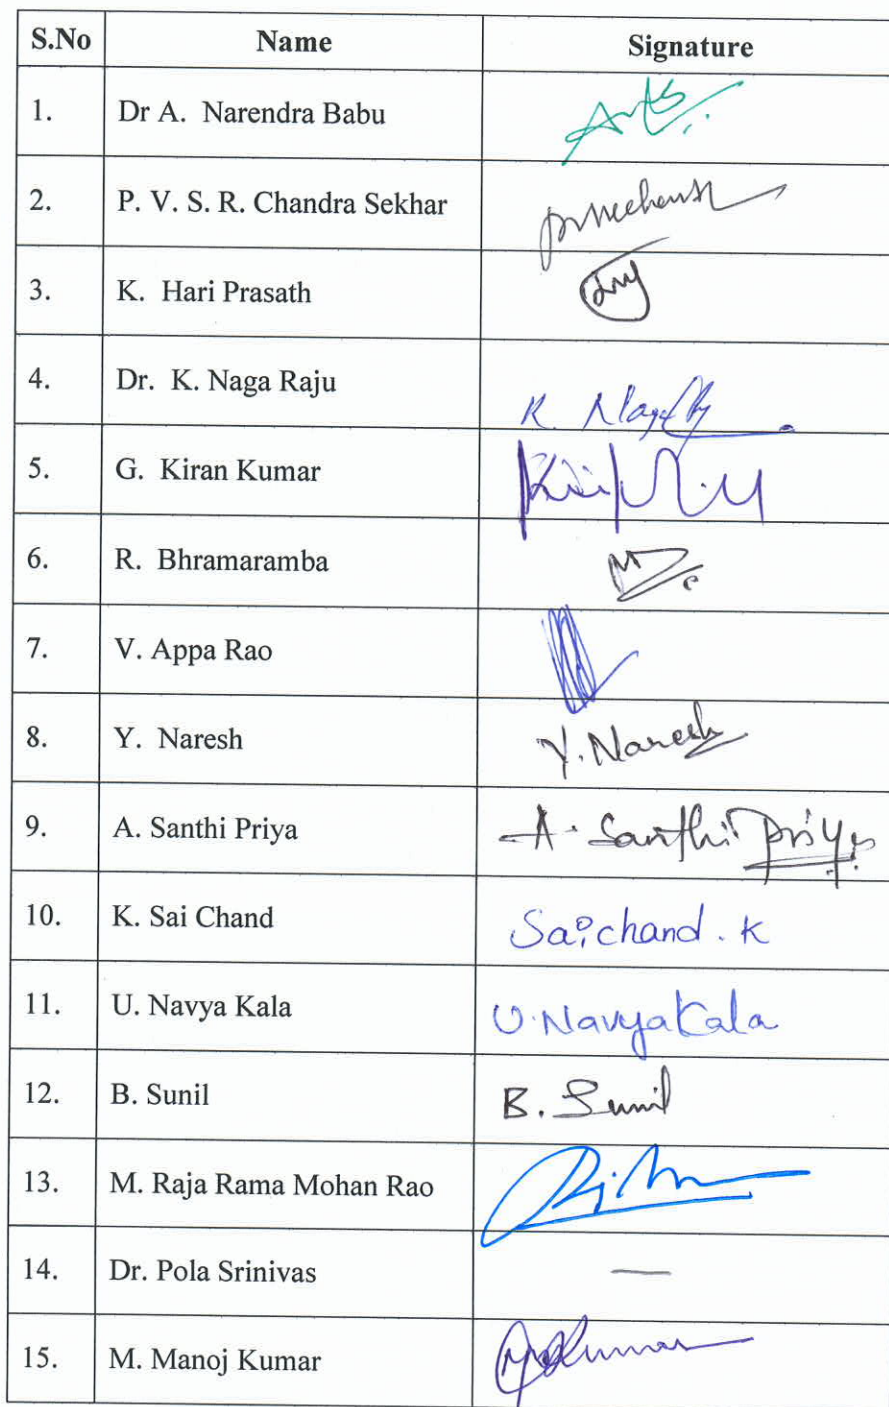 S.No Name Signature
1. Dr A. Narendra Babu
2. P. V. S. R. Chandra Sekhar
3. K. Hari Prasath
4. Dr. K. Naga Raju K.
5. G. Kiran Kumar
6. R. Bhramaramba
7. V. Appa Rao
8. Y. Naresh Y. Naresh
9. A. Santhi Priya A. Santhi Priya
10. K. Sai Chand Saichand. K
11. U. Navya Kala U. Navya Kala
12. B. Sunil B. Sunil
13. M. Raja Rama Mohan Rao
14. Dr. Pola Srinivas —
15. M. Manoj Kumar